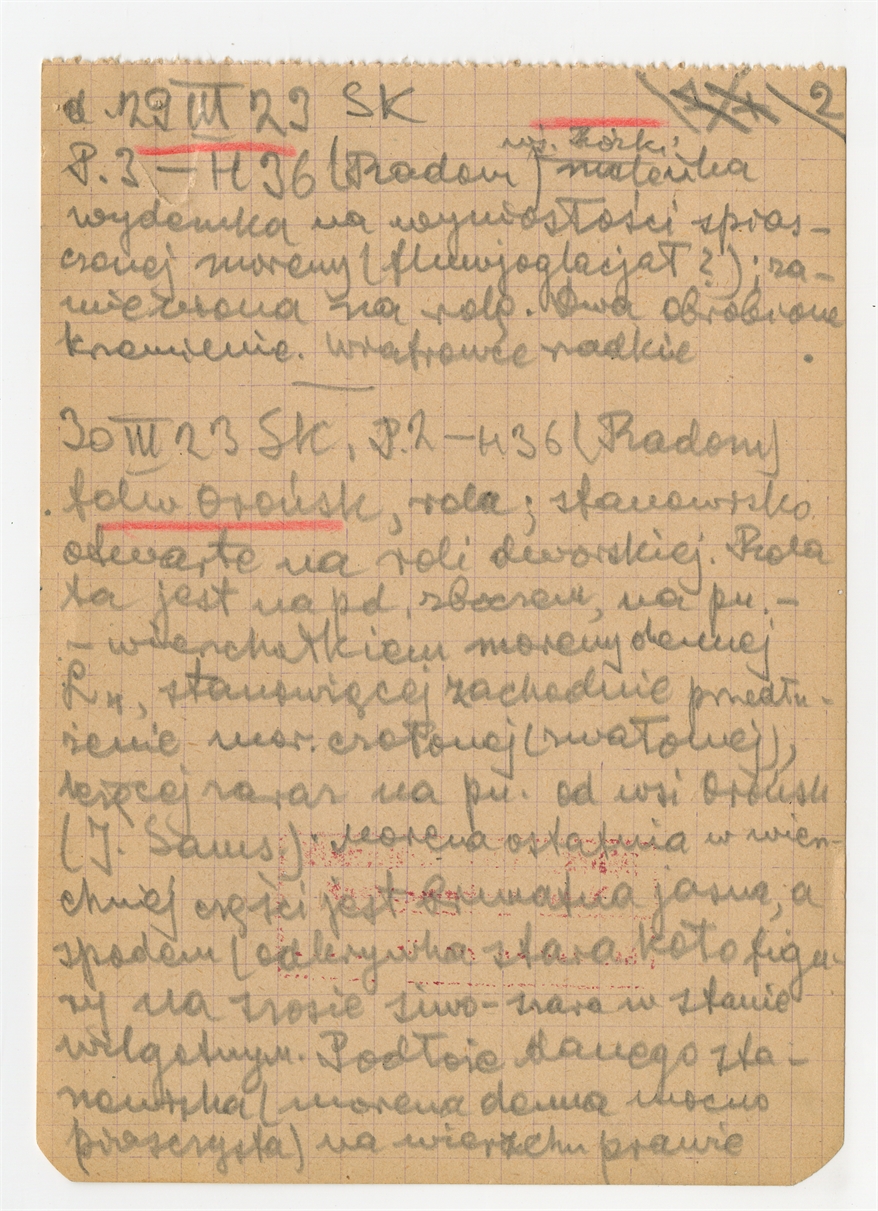 d. 29 III 23 SK 2
wś. Górki
P. 3 — H 36 (Radom) maleńka
wydemka na wyniosłości spias-
czonej moreny (fluwjoglacjał?); za-
mieniona na rolę. Dwa obrobione
krzemienie. Wiatrowce rzadkie
30 III 23 SK, P. 2 — H 36 (Radom)
folw Orońsk, rola; stanowisko
otwarte na roli dworskiej. Rola
ta jest na pd. zboczem, na pn. -
- wierzchołkiem moreny dennej
L4, stanowiącej zachodnie przedłu-
żenie mor. czołowej (zwałowej),
leżącej zaraz na pn. od wsi Orońsk
(J. Sams.). Morena ostatnia w wierz-
chniej części jest brunatna jasna, a
spodem (odkrywka stara koło figu-
ry na szosie siwo-szara w stanie
wilgotnym. Podłoże danego sta-
nowiska (morena denna mocno
piaszczysta) na wierzchu prawie